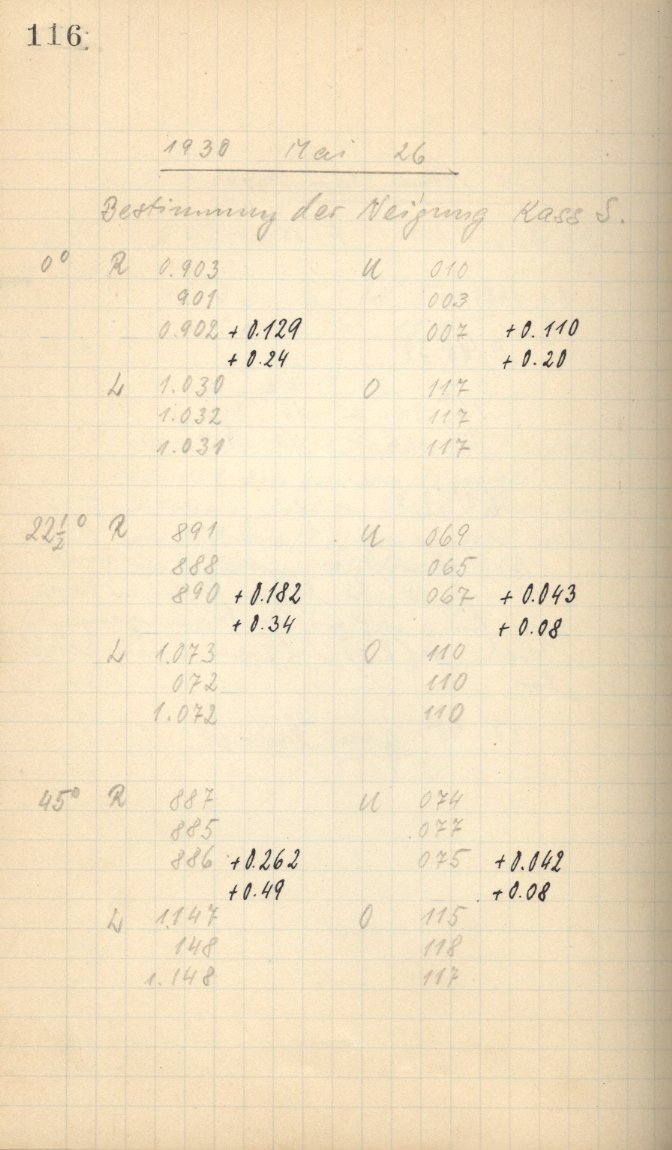 116
1930 Mai 26
Bestimmung der Neigung Kass S.
0° R 0.903 U 010
901 003
0.902 + 0.129 007 + 0.110
+ 0.24 + 0.20
L 1.030 O 117
1.032 117
1.031 117
22½° R 891 U 069
888 065
890 + 0.182 067 + 0.043
+ 0.34 + 0.08
L 1.073 O 110
072 110
1.072 110
45° R 887 U 074
885 077
886 + 0.262 075 + 0.042
+ 0.49 + 0.08
L 1.147 O 115
148 118
1.148 117